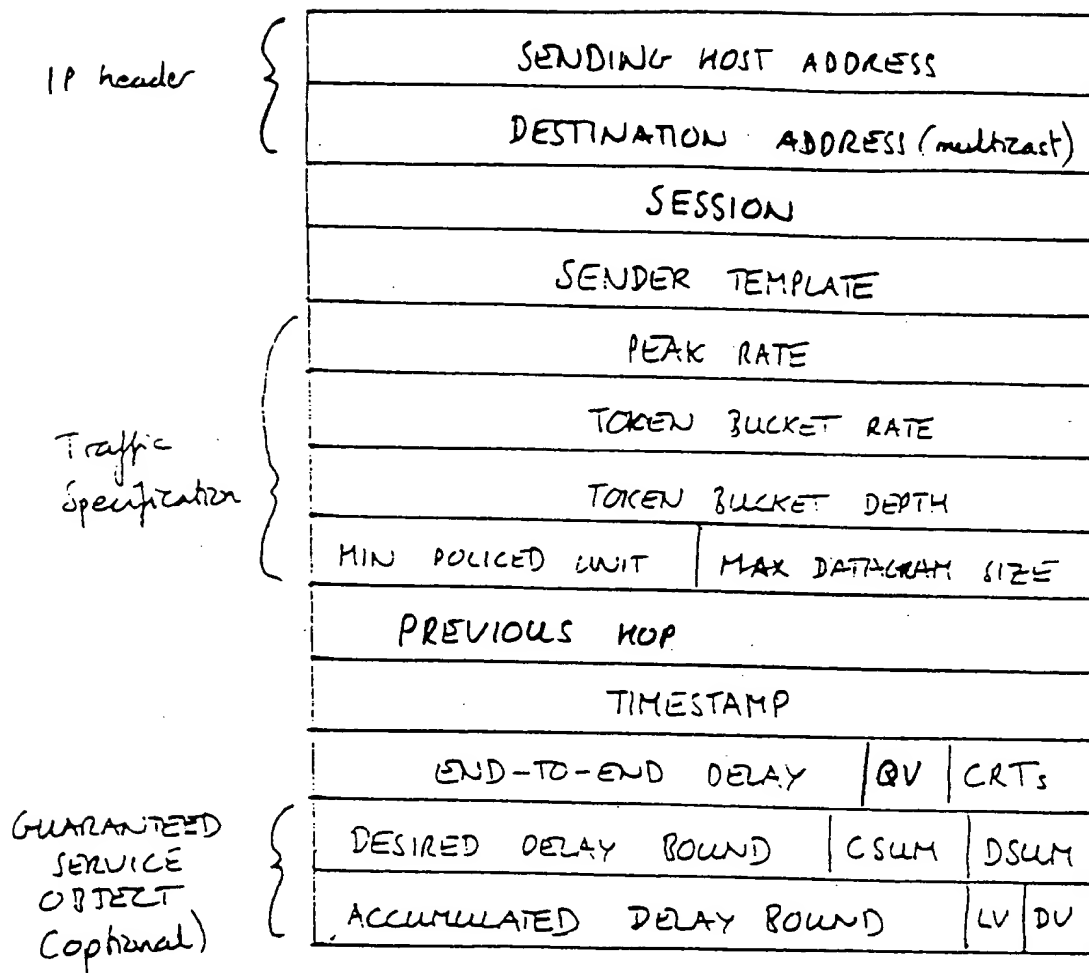 IP header
SENDING HOST ADDRESS
DESTINATION ADDRESS (multicast)
SESSION
SENDER TEMPLATE
Traffic
Specification
PEAK RATE
TOKEN BUCKET RATE
TOKEN BUCKET DEPTH
MIN POLICED UNIT MAX DATAGRAM SIZE
PREVIOUS HOP
TIMESTAMP
END-TO-END DELAY QV CRTs
GUARANTEED
SERVICE
OBJECT
(optional)
DESIRED DELAY BOUND CSUM DSUM
ACCUMULATED DELAY BOUND LV DV